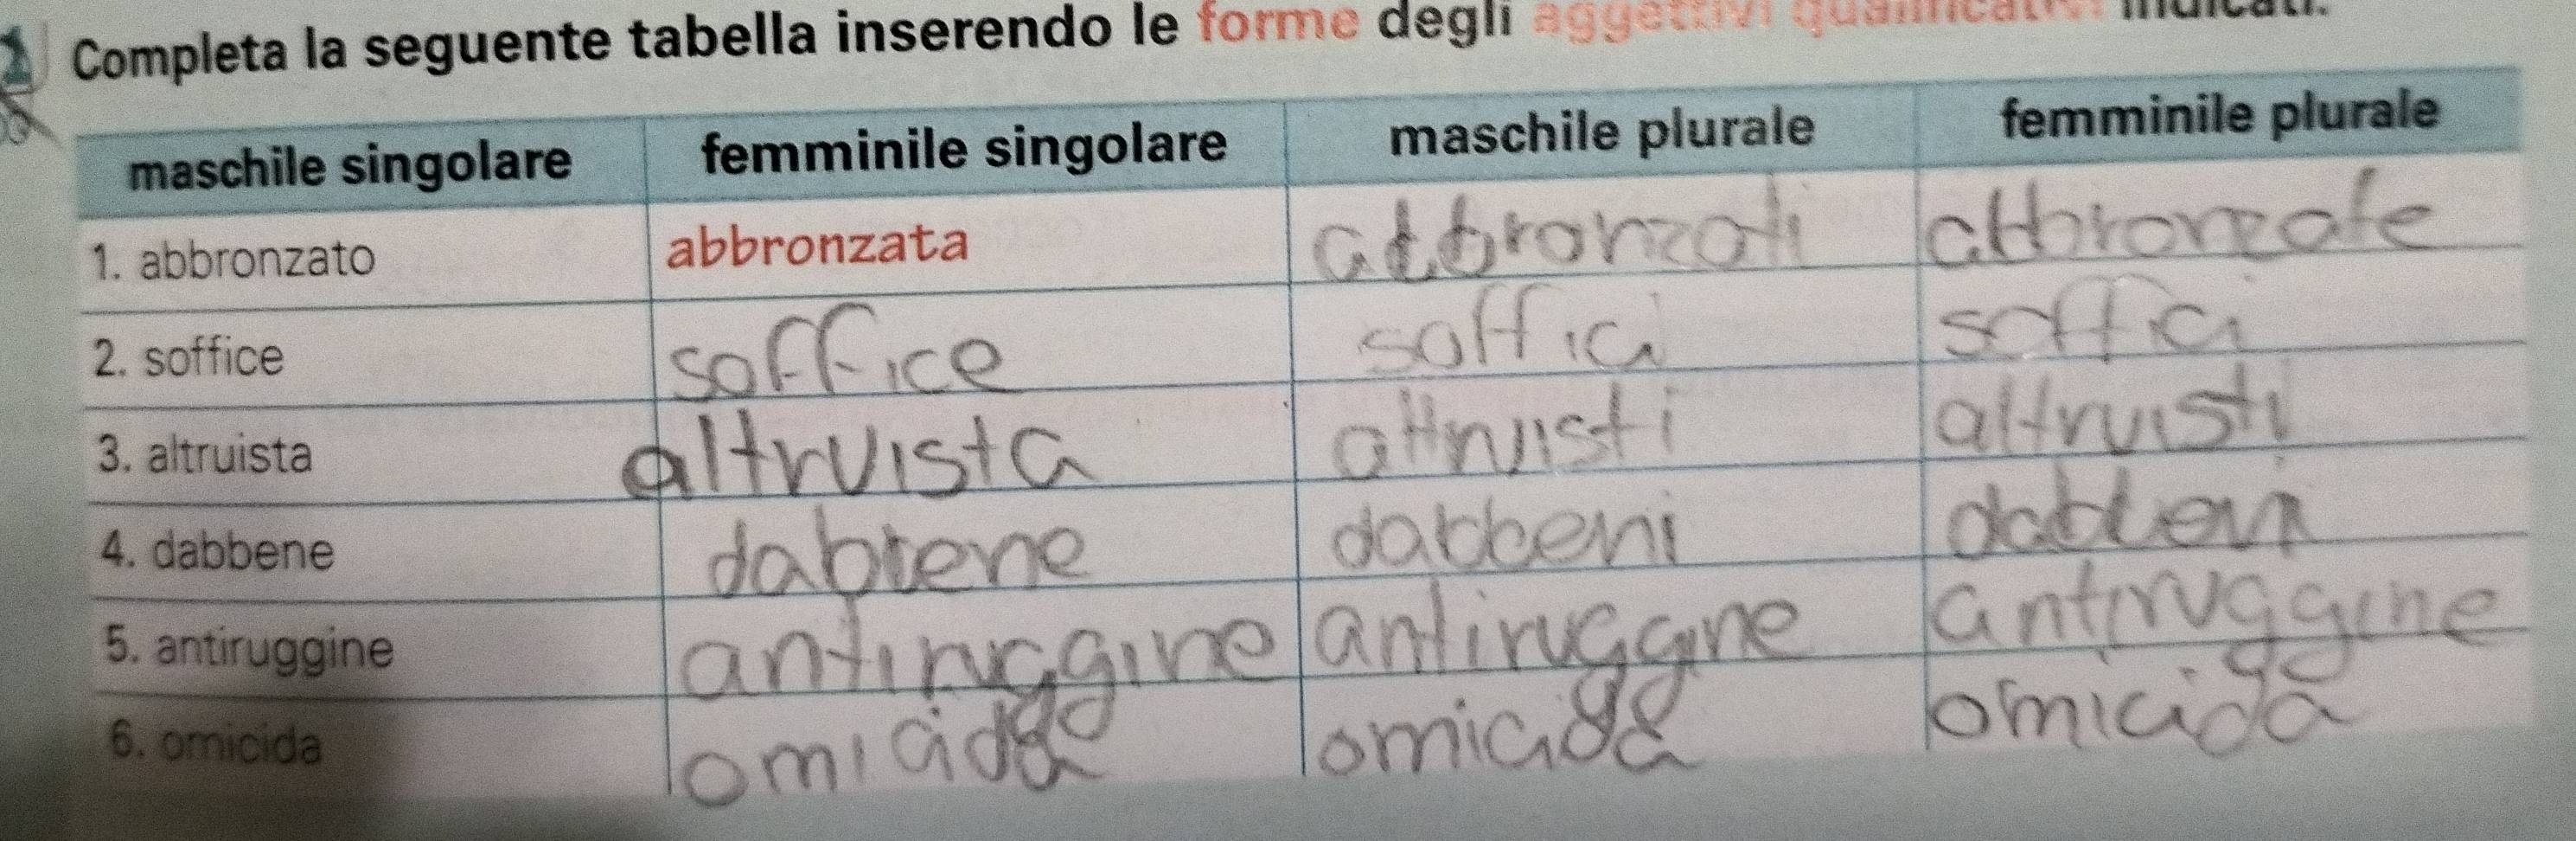 1 Completa la seguente tabella inserendo le forme degli aggettivi qualificativi indicati.
maschile singolare femminile singolare maschile plurale femminile plurale
1. abbronzato abbronzata abbronzati abbronzate
2. soffice soffice soffici soffici
3. altruista altruista altruisti altruisti
4. dabbene dabbene dabbeni dabbeni
5. antiruggine antiruggine antiruggine antiruggine
6. omicida omicida omicida omicida